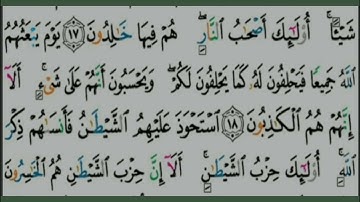 شَيْـًٔا ۚ أُو۟لَـٰٓئِكَ أَصْحَـٰبُ ٱلنَّارِ ۖ هُمْ فِيهَا خَـٰلِدُونَ ۝١٧ يَوْمَ يَبْعَثُهُمُ
ٱللَّهُ جَمِيعًا فَيَحْلِفُونَ لَهُۥ كَمَا يَحْلِفُونَ لَكُمْ ۖ وَيَحْسَبُونَ أَنَّهُمْ عَلَىٰ شَىْءٍ ۚ أَلَآ
إِنَّهُمْ هُمُ ٱلْكَـٰذِبُونَ ۝١٨ ٱسْتَحْوَذَ عَلَيْهِمُ ٱلشَّيْطَـٰنُ فَأَنسَىٰهُمْ ذِكْرَ
ٱللَّهِ ۚ أُو۟لَـٰٓئِكَ حِزْبُ ٱلشَّيْطَـٰنِ ۚ أَلَآ إِنَّ حِزْبَ ٱلشَّيْطَـٰنِ هُمُ ٱلْخَـٰسِرُونَ